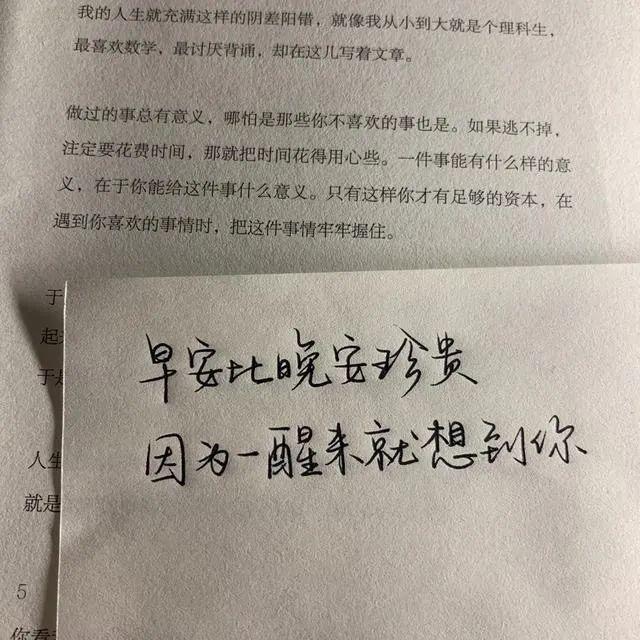 我的人生就充满这样的阴差阳错，就像我从小到大就是个理科生，
最喜欢数学，最讨厌背诵，却在这儿写着文章。
做过的事总有意义，哪怕是那些你不喜欢的事也是。如果逃不掉，
注定要花费时间，那就把时间花得用心些。一件事能有什么样的意
义，在于你能给这件事什么意义。只有这样你才有足够的资本，在
遇到你喜欢的事情时，把这件事情牢牢握住。
于
起
于是
人生
就是
5
你看
早安比晚安珍贵
因为一醒来就想到你